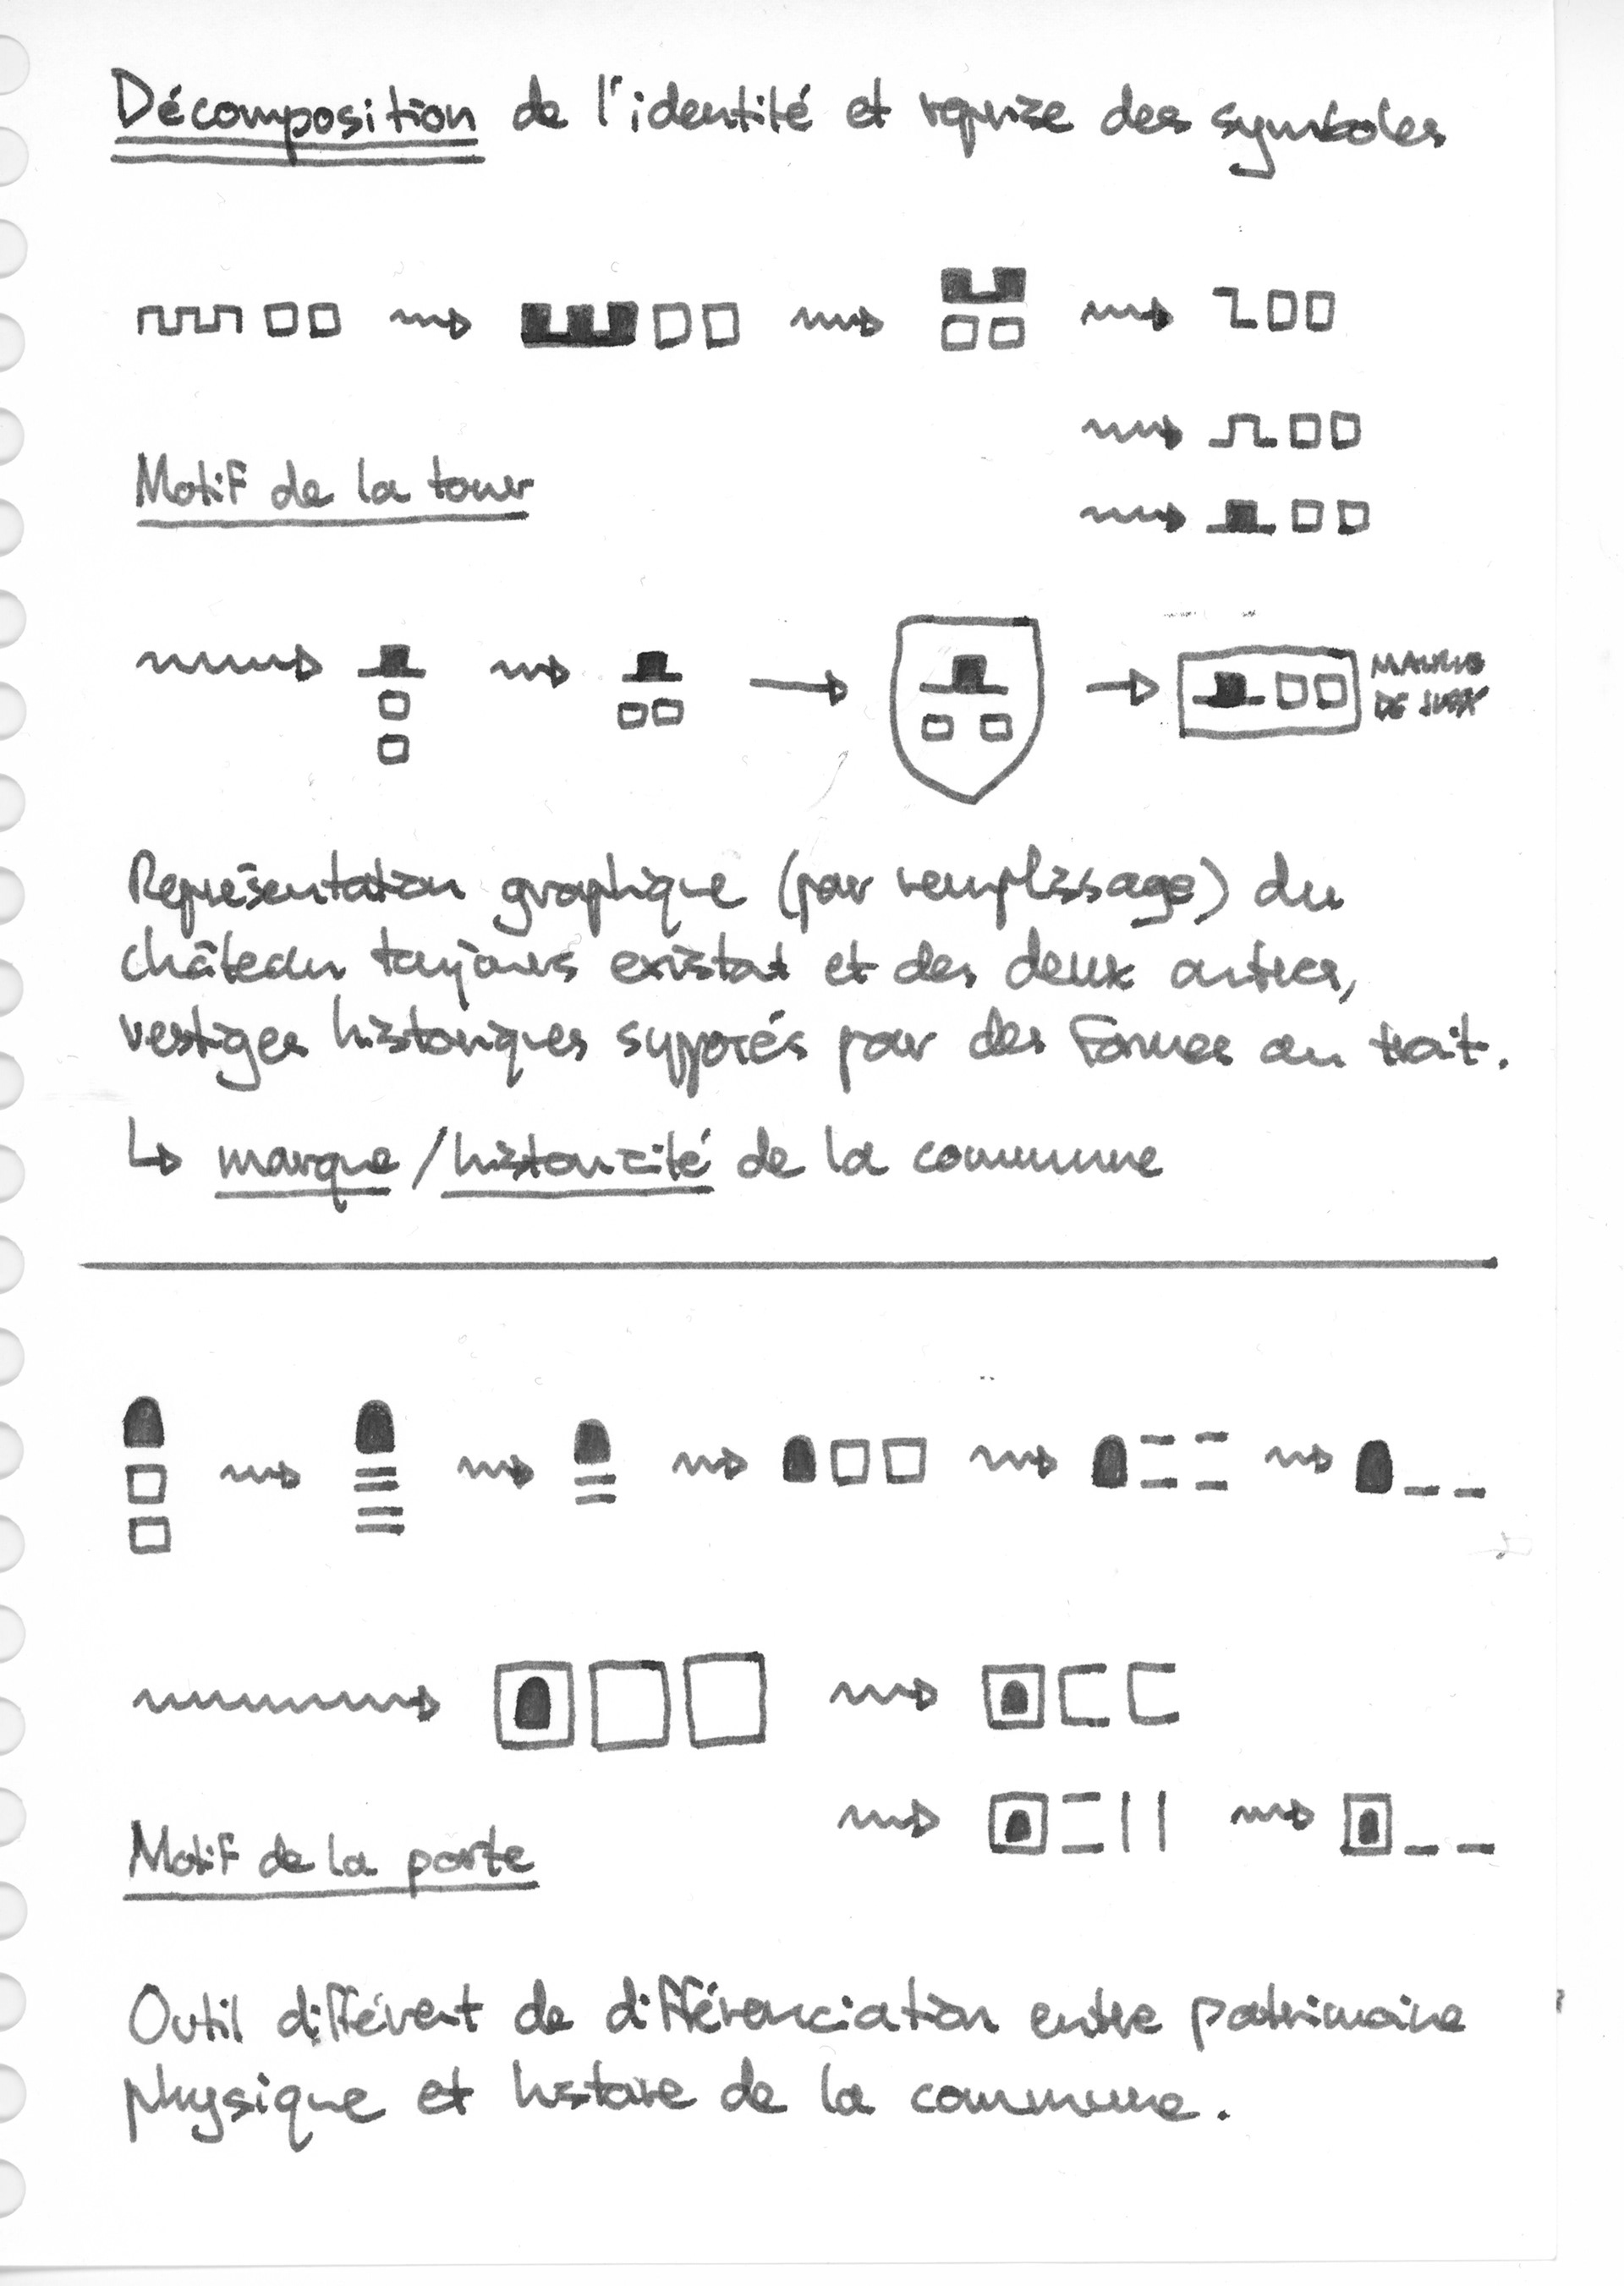 Décomposition de l'identité et reprise des symboles
Motif de la tour
MAIRIE
DE
Représentation graphique (par remplissage) du
château toujours existat et des deux autres,
vestiges historiques supposés par des formes au trait.
↳ marque / historicité de la commune
Motif de la porte
Outil différent de différenciation entre patrimoine
physique et histoire de la commune.